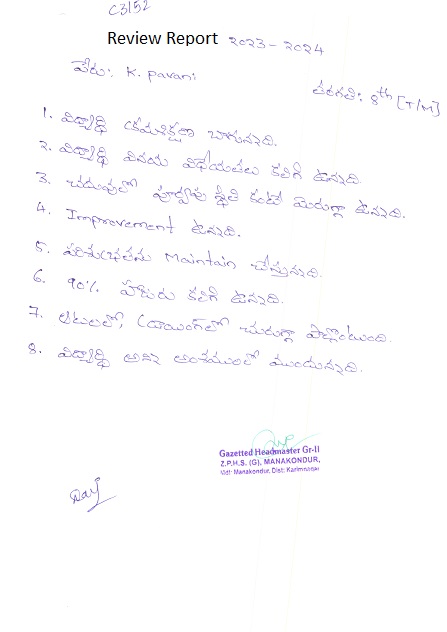 C3152
Review Report 2023 - 2024
పేరు: K. pavani
తరగతి: 8th [T/M]
1. విద్యార్థి క్రమశిక్షణ బాగున్నది.
2. విద్యార్థి వినయ విధేయతలు కలిగి ఉన్నది.
3. చదువులో పూర్వపు స్థితి కంటే మెరుగ్గా ఉన్నది.
4. Improvement ఉన్నది.
5. పరిశుభ్రతను Maintain చేస్తున్నది.
6. 90% హాజరు కలిగి ఉన్నది.
7. ఆటలలో, డ్రాయింగ్‌లో చురుగ్గా పాల్గొంటుంది.
8. విద్యార్థి అన్ని అంశములలో ముందున్నది.
Gazetted Headmaster Gr-II
Z.P.H.S. (G), MANAKONDUR,
Mdl: Manakondur, Dist: Karimnagar